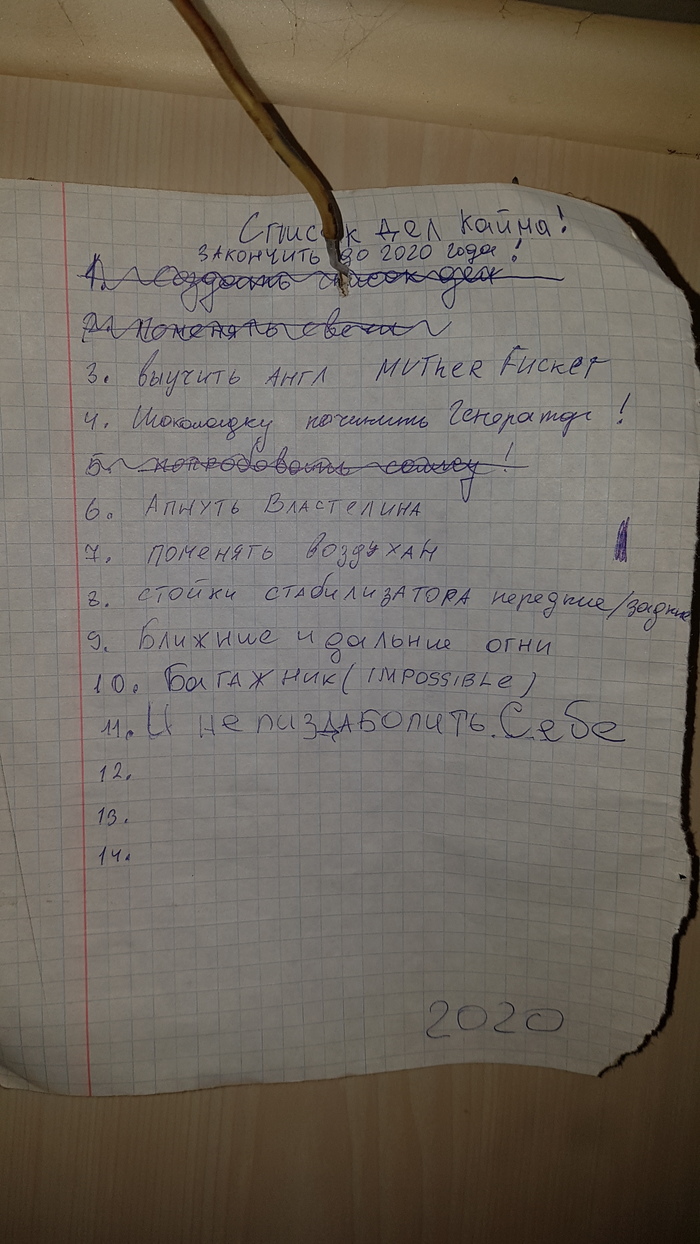 Список дел Кайна!
ЗАКОНЧИТЬ до 2020 года!
1. Создать список дел
2. Поменять свечи
3. Выучить АНГЛ MUTHER FUCKER
4. Шоколадку починить Генератор!
5. попробовать самсу!
6. АПНУТЬ ВЛАСТЕЛИНА
7. ПОМЕНЯТЬ ВОЗДУХАН
8. СТОЙКИ СТАБИЛИЗАТОРА передние/задние
9. Ближние и дальние огни
10. БАГАЖНИК (IMPOSSIBLE)
11. И не ПИЗДАБОЛИТЬ. Себе
12.
13.
14.
2020